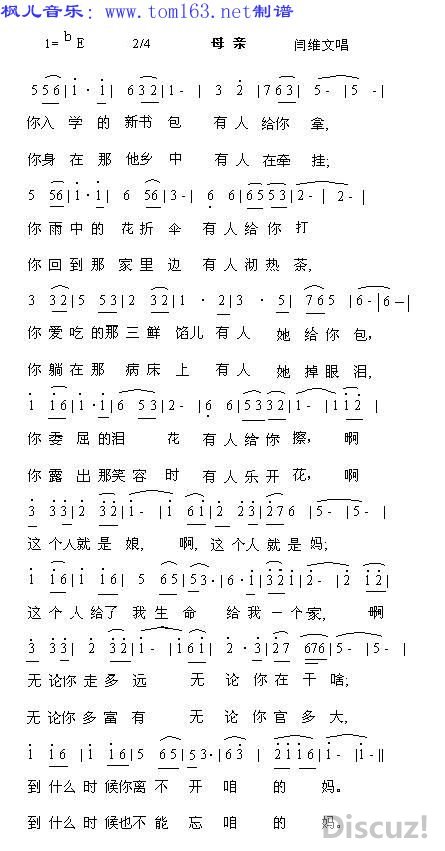 枫儿音乐：www.tom163.net制谱
1= bE 2/4 母亲 闫维文唱
5 5 6 | 1 · 1 | 6 3 2 | 1 - | 3 2 | 7 6 3 | 5 - | 5 - |
你入 学 的 新书 包 有 人 给你 拿,
你身 在 那 他乡 中 有 人 在牵 挂;
5 56 | 1 · 1 | 6 56 | 3 - | 6 6 | 65 53 | 2 - | 2 - |
你 雨 中 的 花 折 伞 有 人 给 你 打
你 回 到 那 家 里 边 有 人 沏 热 茶,
3 32 | 5 53 | 2 32 | 1 · 2 | 3 · 5 | 7 65 | 6 - | 6 - |
你 爱 吃 的 那 三 鲜 馅儿 有 人 她 给 你 包,
你 躺 在 那 病 床 上 有 人 她 掉 眼 泪,
1 16 | 1 · 1 | 6 53 | 2 - | 6 6 | 53 32 | 1 - | 11 2 |
你 委 屈 的泪 花 有 人 给 你 擦, 啊
你 露 出 那笑 容 时 有 人 乐 开 花, 啊
3 33 | 2 32 | 1 - | 1 61 | 2 23 | 27 6 | 5 - | 5 - |
这 个人 就 是 娘, 啊, 这 个 人 就 是 妈;
1 16 | 1 16 | 5 65 | 53 · | 6 · 1 | 32 1 | 2 - | 2 12 |
这 个 人 给了 我 生 命 给 我 一 个 家, 啊
3 33 | 2 32 | 1 - | 1 61 | 2 · 3 | 27 676 | 5 - | 5 - |
无 论你 走 多 远 无 论 你 在 干 啥;
无 论你 多 富 有 无 论 你 官 多 大,
1 16 | 1 12 | 5 65 | 53 · | 6 3 | 21 16 | 1 - | 1 - ‖
到 什么 时 候你 离 不 开 咱 的 妈。
到 什么 时 候也 不 能 忘 咱 的 妈。
Discuz!